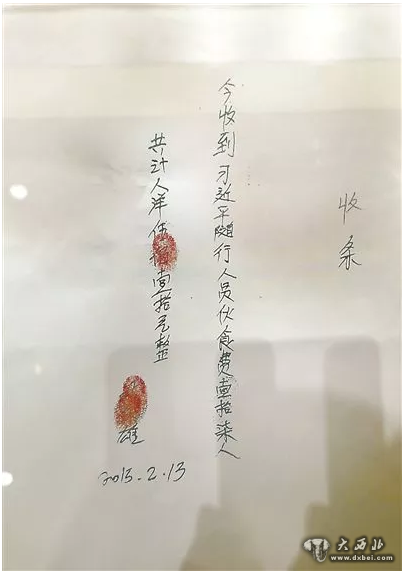 收条
今收到习近平随行人员伙食费壹拾柒人
共计人洋伍壹拾元整
雄
2015.2.13
大西北
www.dxbei.com